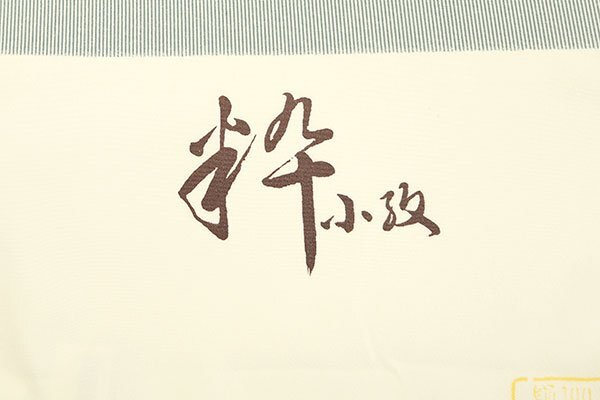 粋小紋
絹100